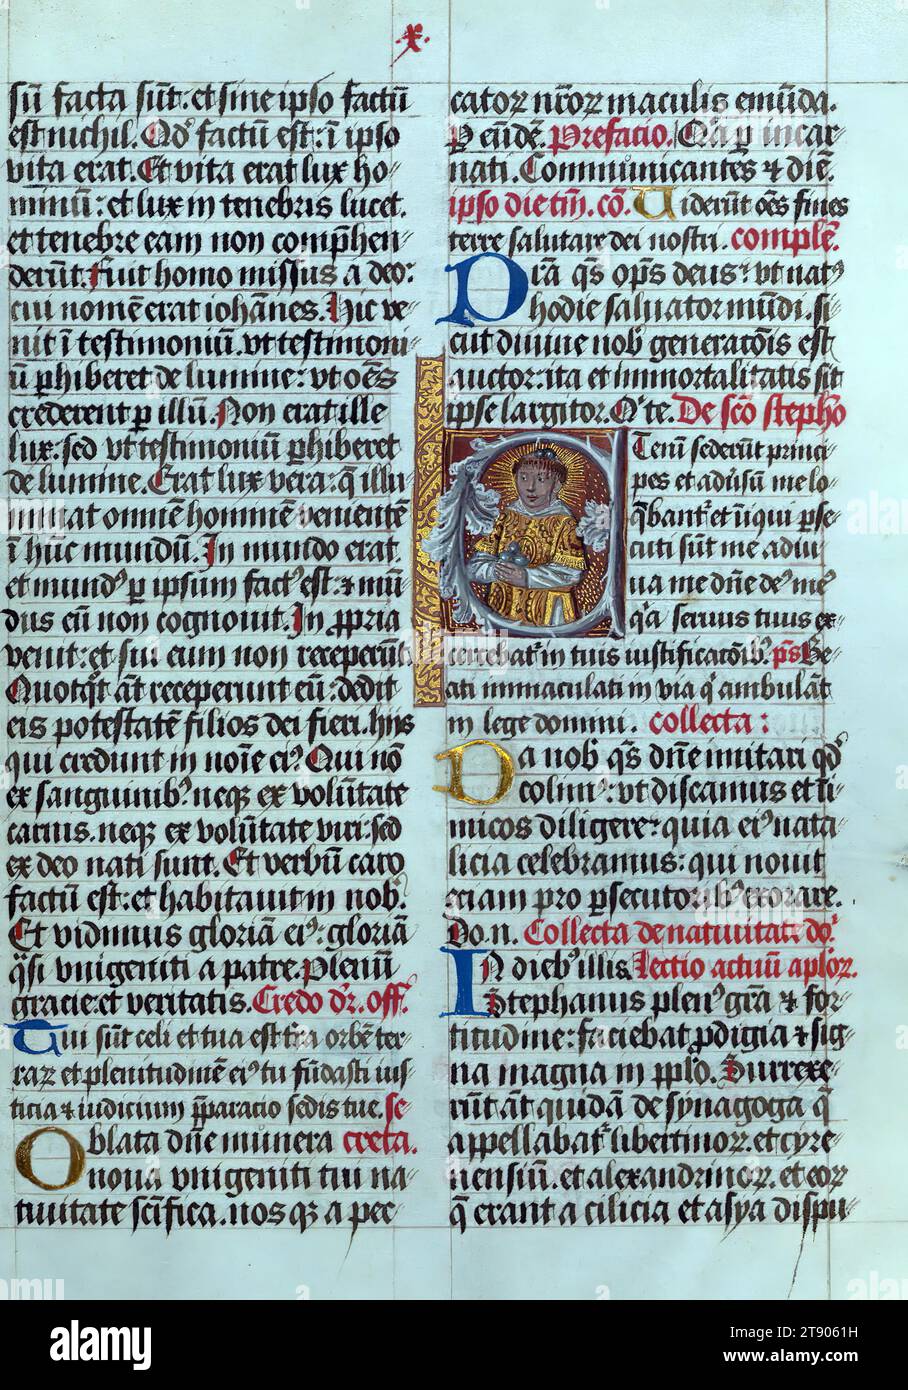 .x.
sū facta sūt: et sine ipso factū
est nichil. Qd' factū est: ī ipso
vita erat. Et vita erat lux ho-
minū: et lux in tenebris lucet.
et tenebre eam non comp̄hen-
derūt. Fuit homo missus a deo:
cui nomē erat iohānes. Hic ve-
nit ī testimoniū. vt testimoni-
ū ꝑhiberet de lumine: vt oēs
crederent ꝑ illū. Non erat ille
lux: sed vt testimoniū ꝑhiberet
de lumine. Erat lux vera: q̄ illu-
minat omnē hominē venientē
ī huc mundū. In mundo erat
et mund' ꝑ ipsum fact' est: & mū-
dus eū non cognouit. In ꝓpria
venit: et sui eum non receperūt.
Quotq̄t āt receperunt eū: dedit
eis potestatē filios dei fieri. hijs
qui credunt in noīe ei'. Qui nō
ex sanguinib' neqꝫ ex volūtate
carnis. neqꝫ ex volūtate viri: sed
ex deo nati sunt. Et verbū caro
factū est: et habitauit in nob'.
Et vidimus gloriā ei': gloriā
q̄si vnigeniti a patre. Plenū
gracie. et veritatis. Credo d̄r. off'.
Tui sūt celi et tua est t̄ra orbē ter-
raꝝ et plenitudinē ei' tu fūdasti ius-
ticia & iudicium p̄paracio sedis tue. se-
Oblata dn̄e munera creta.
noua vnigeniti tui na-
tiuitate sc̄ifica. nos qꝫ a pec-
catoꝝ nr̄oꝝ maculis emūda.
P eūdē. Prefacio. Q'a ꝑ incar-
nati. Communicantes & diē.
ipso die tm̄. cō. Uiderūt oēs fines
terre salutare dei nostri. complē.
Pr̄a q̄s op̄s deus: vt nat'
hodie saluator mūdi. si-
cut diuine nob' generacōis est
auctor: ita et immortalitatis sit
ipse largitor. Q'te. De sc̄o stepho
Etenī sederūt princi-
pes et adu'sū me lo-
q̄bant' et īiqui ꝑse-
cuti sūt me adiu-
ua me dn̄e de' me'
q'a seruus tuus ex-
ercebat' in tuis iustificacōib'. p̄s Be-
ati immaculati in via q' ambulāt
in lege domini. collecta:
Da nob' q̄s dn̄e imitari qd'
colim': vt discamus et ī-
micos diligere: quia ei' nata-
licia celebramus: qui nouit
eciam pro ꝑsecutorib' exorare.
Do. n. Collecta de natiuitate do'.
In dieb' illis. lectio actuū aplo'r.
Stephanus plen' gr̄a & for-
titudine: faciebat ꝓdigia & sig-
na magna in pp̄lo. Surrexe-
rūt āt quidā de synagoga q̄
appellabat' libertinoꝝ. et cyre-
nensiū. et alexandrinoꝝ. et eoꝝ
q̄ erant a cilicia et asya dispu-
alamy
Image ID: 2T9061H
www.alamy.com